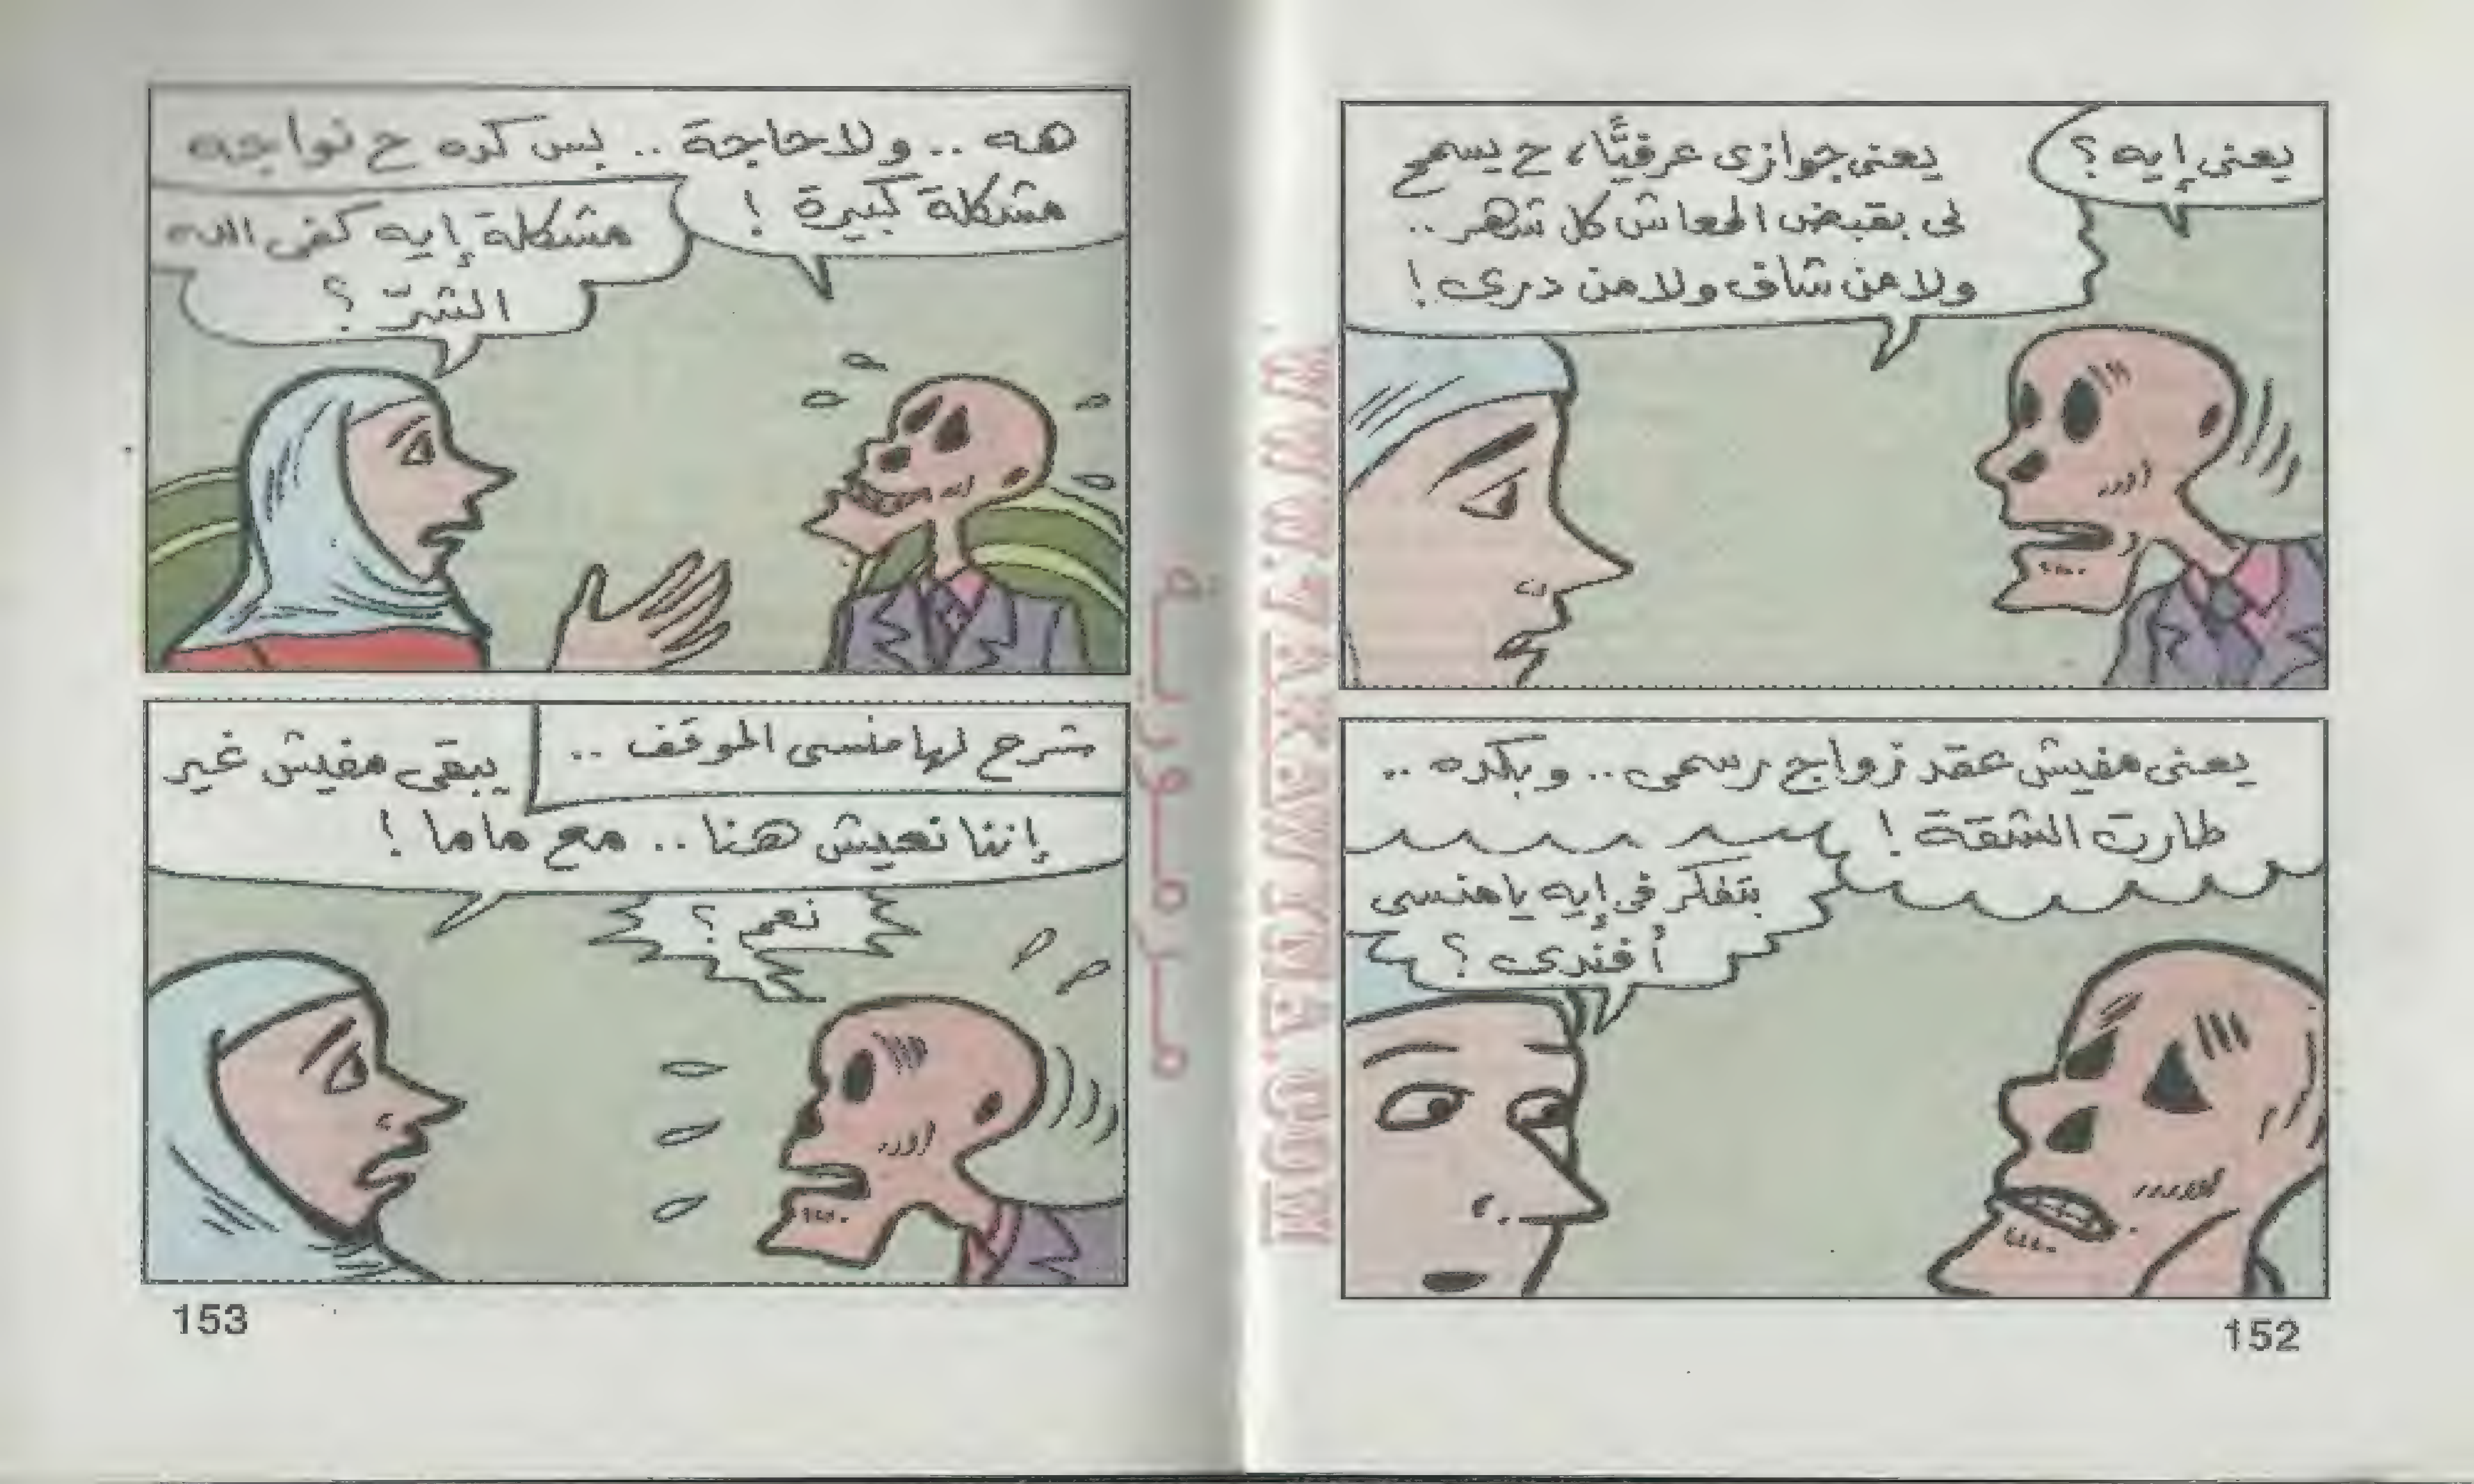 يعنى إيه ؟
يعنى جوازى عرفيًّا، ح يسمح
لى بقبض المعاش كل شهر..
ولا من شاف ولا من درى !
يعنى مفيش عقد زواج رسمى.. وبكده ..
طارت الشقة !
بتفكر فى إيه يا منسى
أفندى ؟
152
هه .. ولا حاجة .. بس كده ح نواجه
مشكلة كبيرة !
مشكلة إيه كفى الله
الشرّ ؟
شرح لها منسى الموقف ..
يبقى مفيش غير
إننا نعيش هنا .. مع ماما !
نعم ؟
153
مرمورية
WWW.7AKAWEETNA.COM